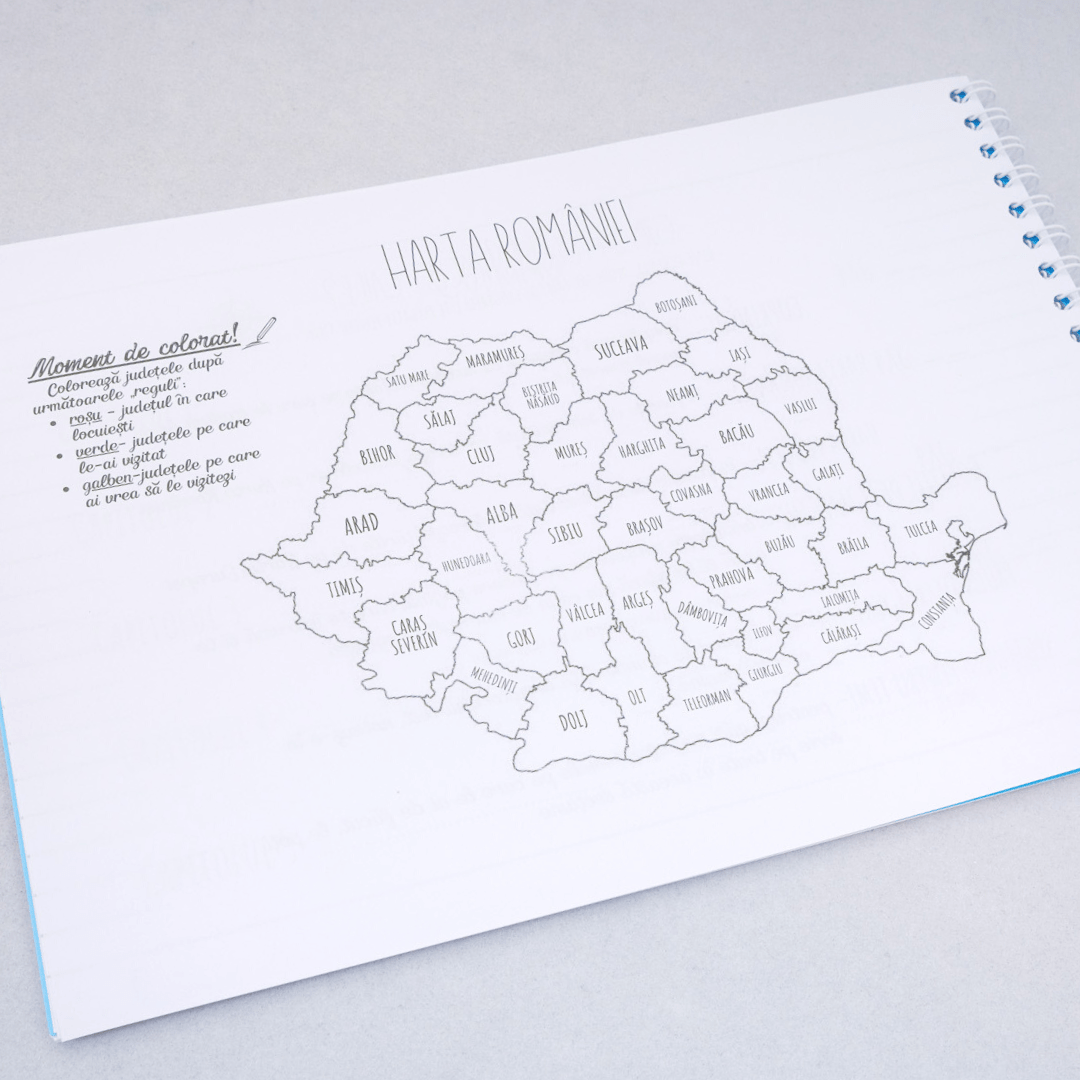 HARTA ROMÂNIEI
Moment de colorat!
Colorează județele după
următoarele „reguli":
• roșu - județul în care
locuiești
• verde- județele pe care
le-ai vizitat
• galben-județele pe care
ai vrea să le vizitezi
BOTOȘANI
SUCEAVA
MARAMUREȘ
SATU MARE
IAȘI
BISTRIȚA
NĂSĂUD
NEAMȚ
SĂLAJ
VASLUI
BIHOR
CLUJ
MUREȘ
HARGHITA
BACĂU
GALAȚI
COVASNA
VRANCEA
ARAD
ALBA
SIBIU
BRAȘOV
TULCEA
HUNEDOARA
BUZĂU
BRĂILA
TIMIȘ
PRAHOVA
CARAȘ
SEVERIN
VÂLCEA
ARGEȘ
DÂMBOVIȚA
IALOMIȚA
CONSTANȚA
GORJ
ILFOV
CĂLĂRAȘI
MEHEDINȚI
GIURGIU
DOLJ
OLT
TELEORMAN